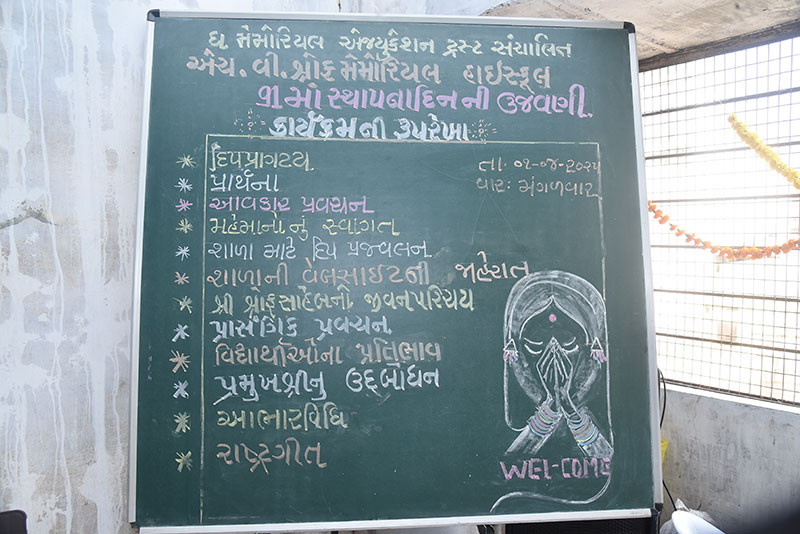 ધ મેમોરિયલ એજ્યુકેશન ટ્રસ્ટ સંચાલિત
એચ. વી. શ્રોફ મેમોરિયલ હાઇસ્કૂલ
૭૧માં સ્થાપનાદિનની ઉજવાણી.
કાર્યક્રમની રૂપરેખા
તા ૦૧-૦૪-૨૦૨૫
વાર: મંગળવાર
દિપપ્રાગટય
પ્રાર્થના
આવકાર પ્રવચન
મહેમાનોનું સ્વાગત
શાળા માટે દિપ પ્રજવલન
શાળાની વેબસાઇટની જાહેરાત
શ્રી શ્રોફસાહેબનો જીવનપરિચય
પ્રાસંગિક પ્રવચન
વિદ્યાર્થીઓના પ્રતિભાવ
પ્રમુખશ્રીનુ ઉદ્બોધન
આભારવિધિ
રાષ્ટ્રગીત
WEL-COME